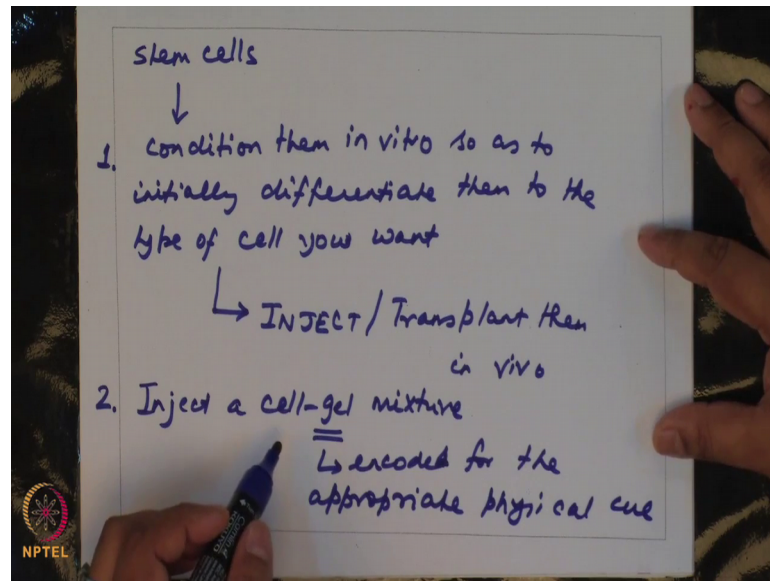 stem cells
↓
1. condition them in vitro so as to
initially differentiate them to the
type of cell you want
↳ INJECT / Transplant them
in vivo
2. Inject a cell-gel mixture
↳ encoded for the
appropriate physical cue
NPTEL